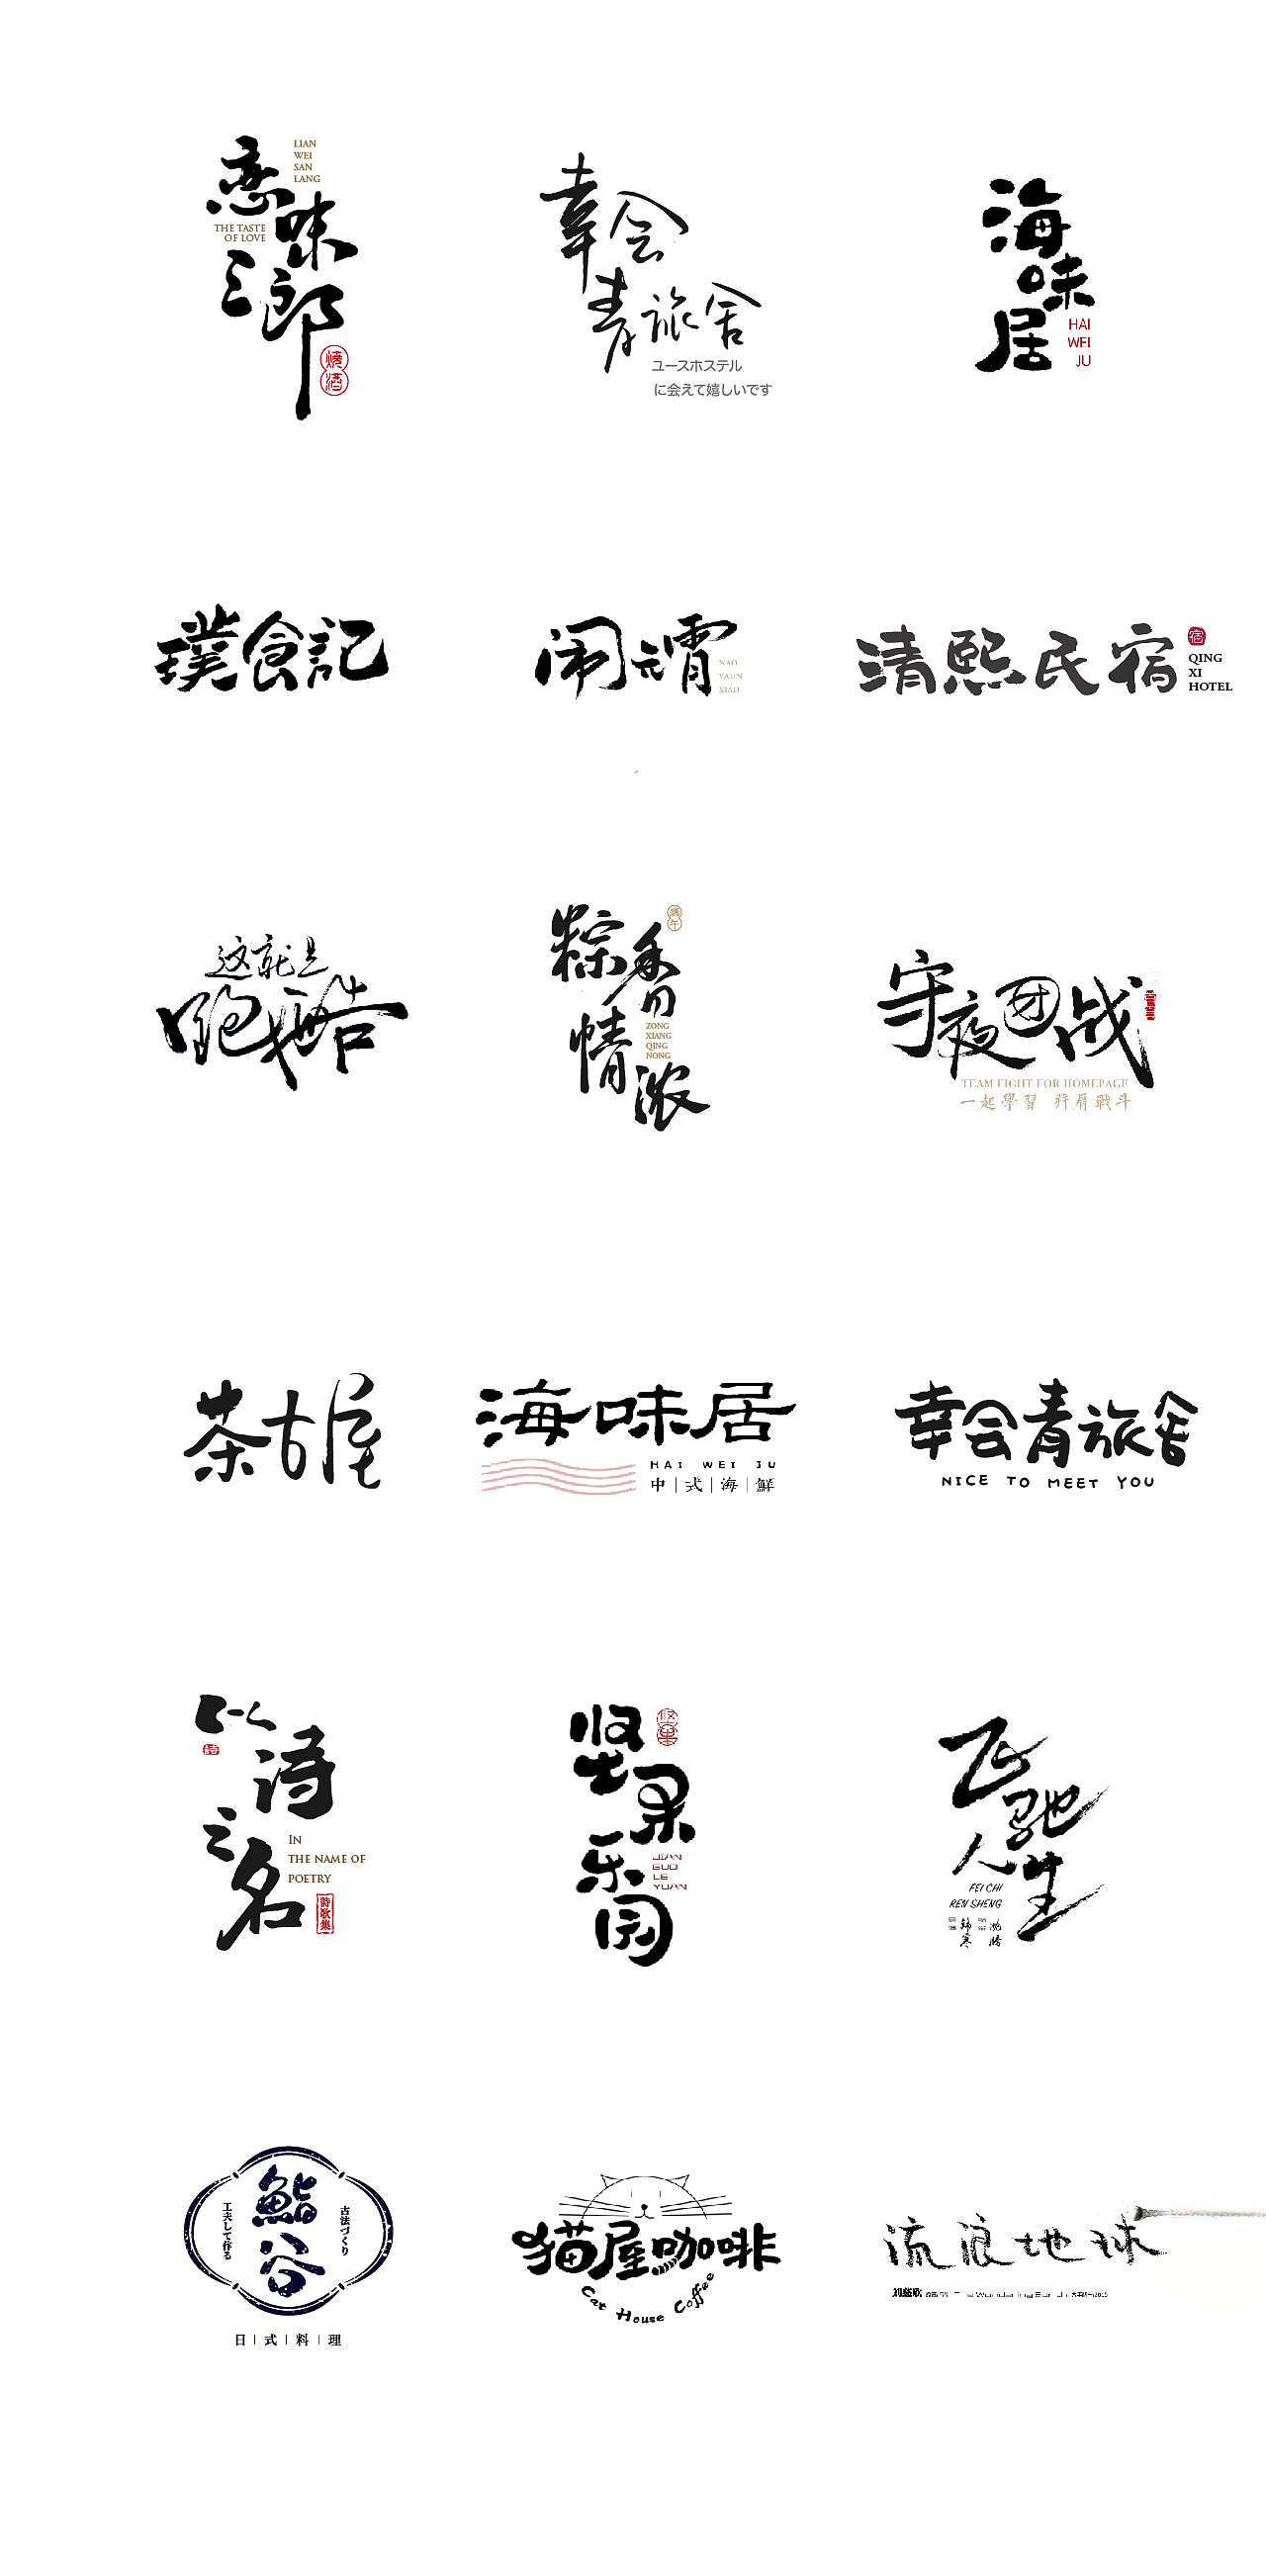 恋味三郎
LIAN
WEI
SAN
LANG
THE TASTE
OF LOVE
燒酒
幸会
青旅舍
ユースホステル
に会えて嬉しいです
海味居
HAI
WEI
JU
璞食記
闹元霄
NAO
YAUN
XIAO
清熙民宿
宿
QING
XI
HOTEL
这就是
跑酷
粽香
情浓
端午
ZONG
XIANG
QING
NONG
守夜团战
TEAM FIGHT FOR HOMEPAGE
一起學習 并肩戰斗
茶古屋
海味居
HAI WEI JU
中|式|海|鮮
幸会青旅舍
NICE TO MEET YOU
以诗
之名
詩
IN
THE NAME OF
POETRY
詩歌集
坚果
乐园
JIAN
GUO
LE
YUAN
飞驰
人生
FEI CHI
REN SHENG
韩寒
沈腾
鮨谷
古法づくり
工夫して作る
日|式|料|理
猫屋咖啡
Cat House Coffee
流浪地球